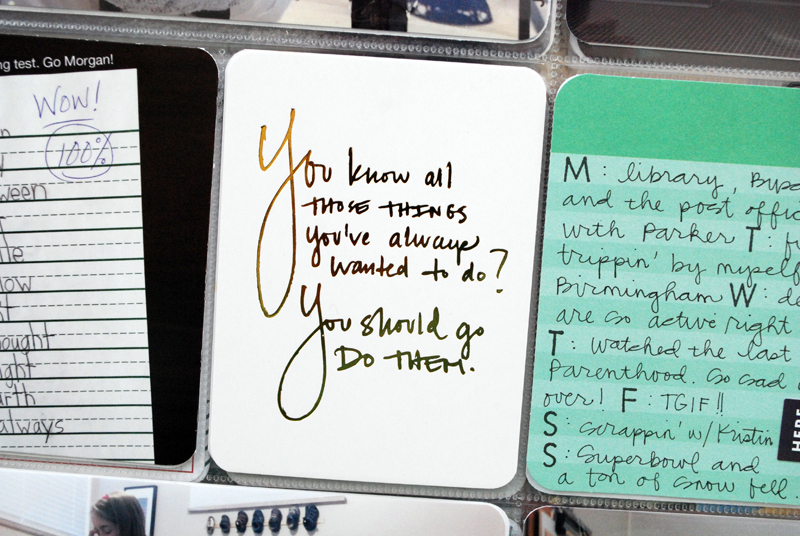 ng test. Go Morgan!
WOW!
100%
ween
ow
ought
ght
arth
always
You know all
THOSE THINGS
you've always
wanted to do?
You should go
DO THEM.
M: library,
and the post offic
with Parker T: f
trippin' by myself
Birmingham W: d
are so active right
T: watched the last
Parenthood. So sad
over! F: TGIF!!
S: Scrappin' w/ Kristin
S: Superbowl and
a ton of snow fell.
HERE